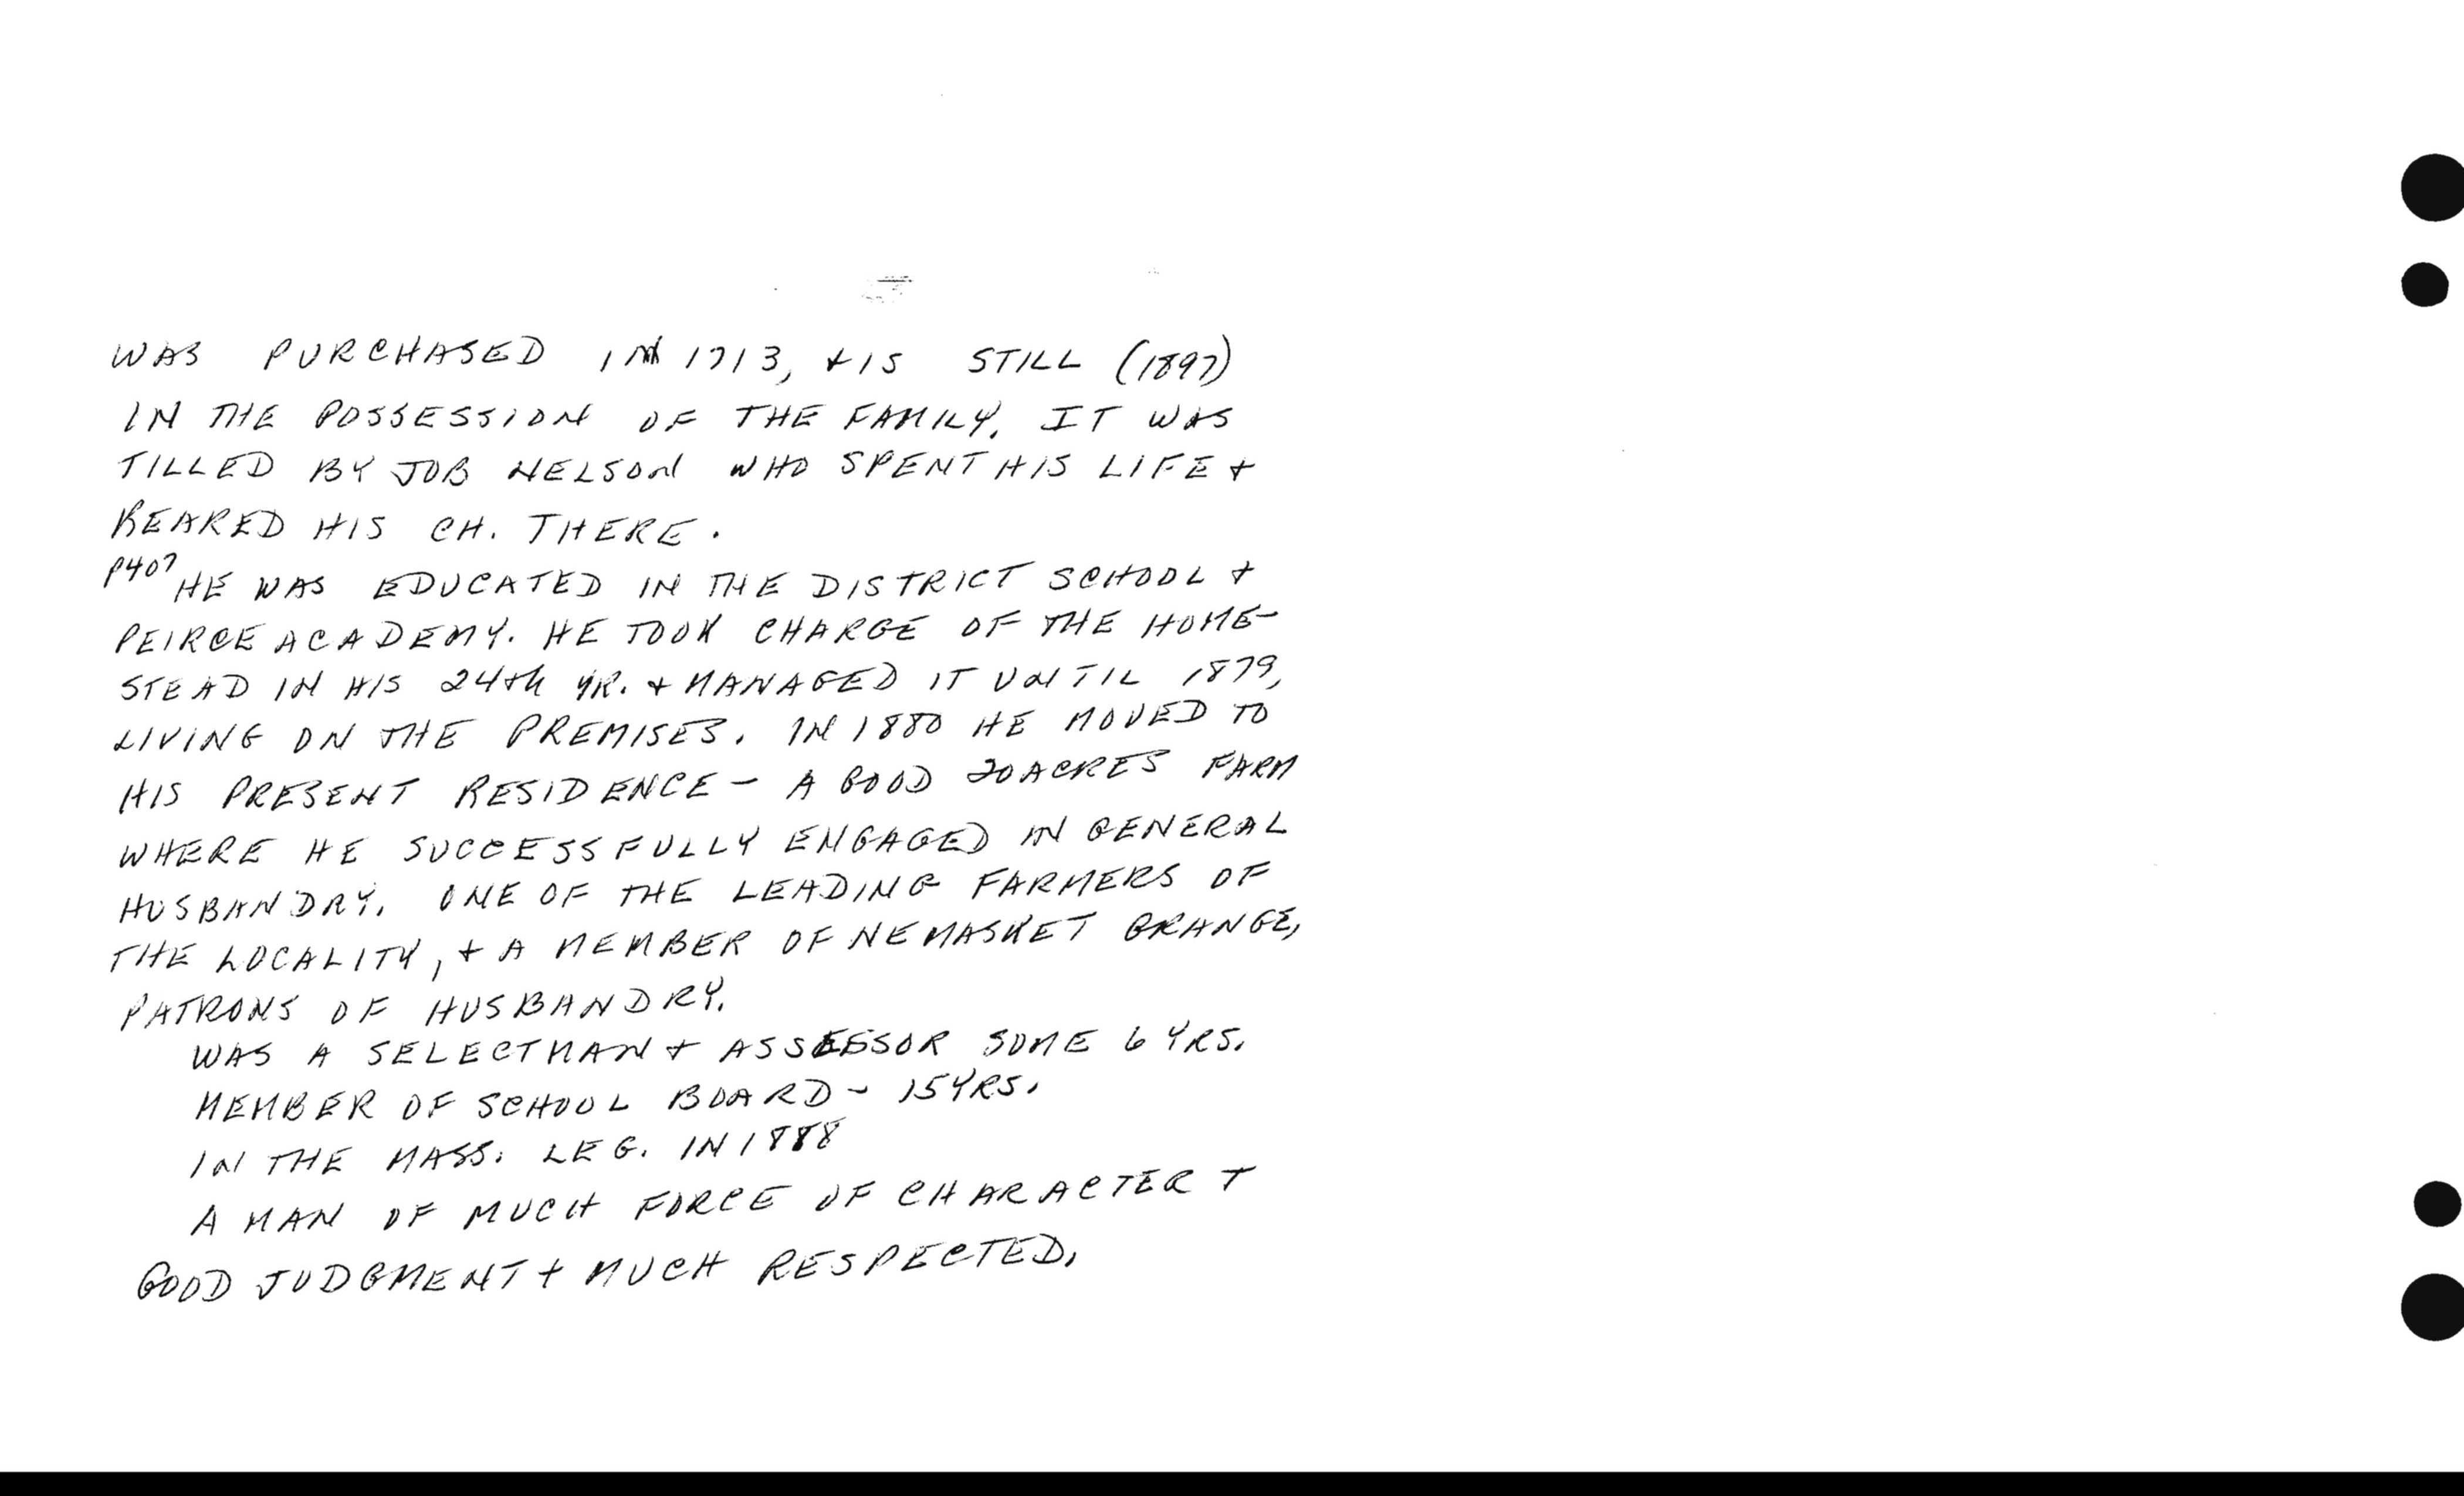 WAS PURCHASED IN 1713, + IS STILL (1897)
IN THE POSSESSION OF THE FAMILY. IT WAS
TILLED BY JOB NELSON WHO SPENT HIS LIFE +
REARED HIS CH. THERE.
P407 HE WAS EDUCATED IN THE DISTRICT SCHOOL +
PEIRCE ACADEMY. HE TOOK CHARGE OF THE HOME-
STEAD IN HIS 24th YR. + MANAGED IT UNTIL 1879,
LIVING ON THE PREMISES. IN 1880 HE MOVED TO
HIS PRESENT RESIDENCE - A GOOD 20 ACRES FARM
WHERE HE SUCCESSFULLY ENGAGED IN GENERAL
HUSBANDRY. ONE OF THE LEADING FARMERS OF
THE LOCALITY, + A MEMBER OF NEMASKET GRANGE,
PATRONS OF HUSBANDRY.
WAS A SELECTMAN + ASSESSOR SOME 6 YRS.
MEMBER OF SCHOOL BOARD - 15 YRS.
IN THE MASS. LEG. IN 1888
A MAN OF MUCH FORCE OF CHARACTER +
GOOD JUDGMENT + MUCH RESPECTED.